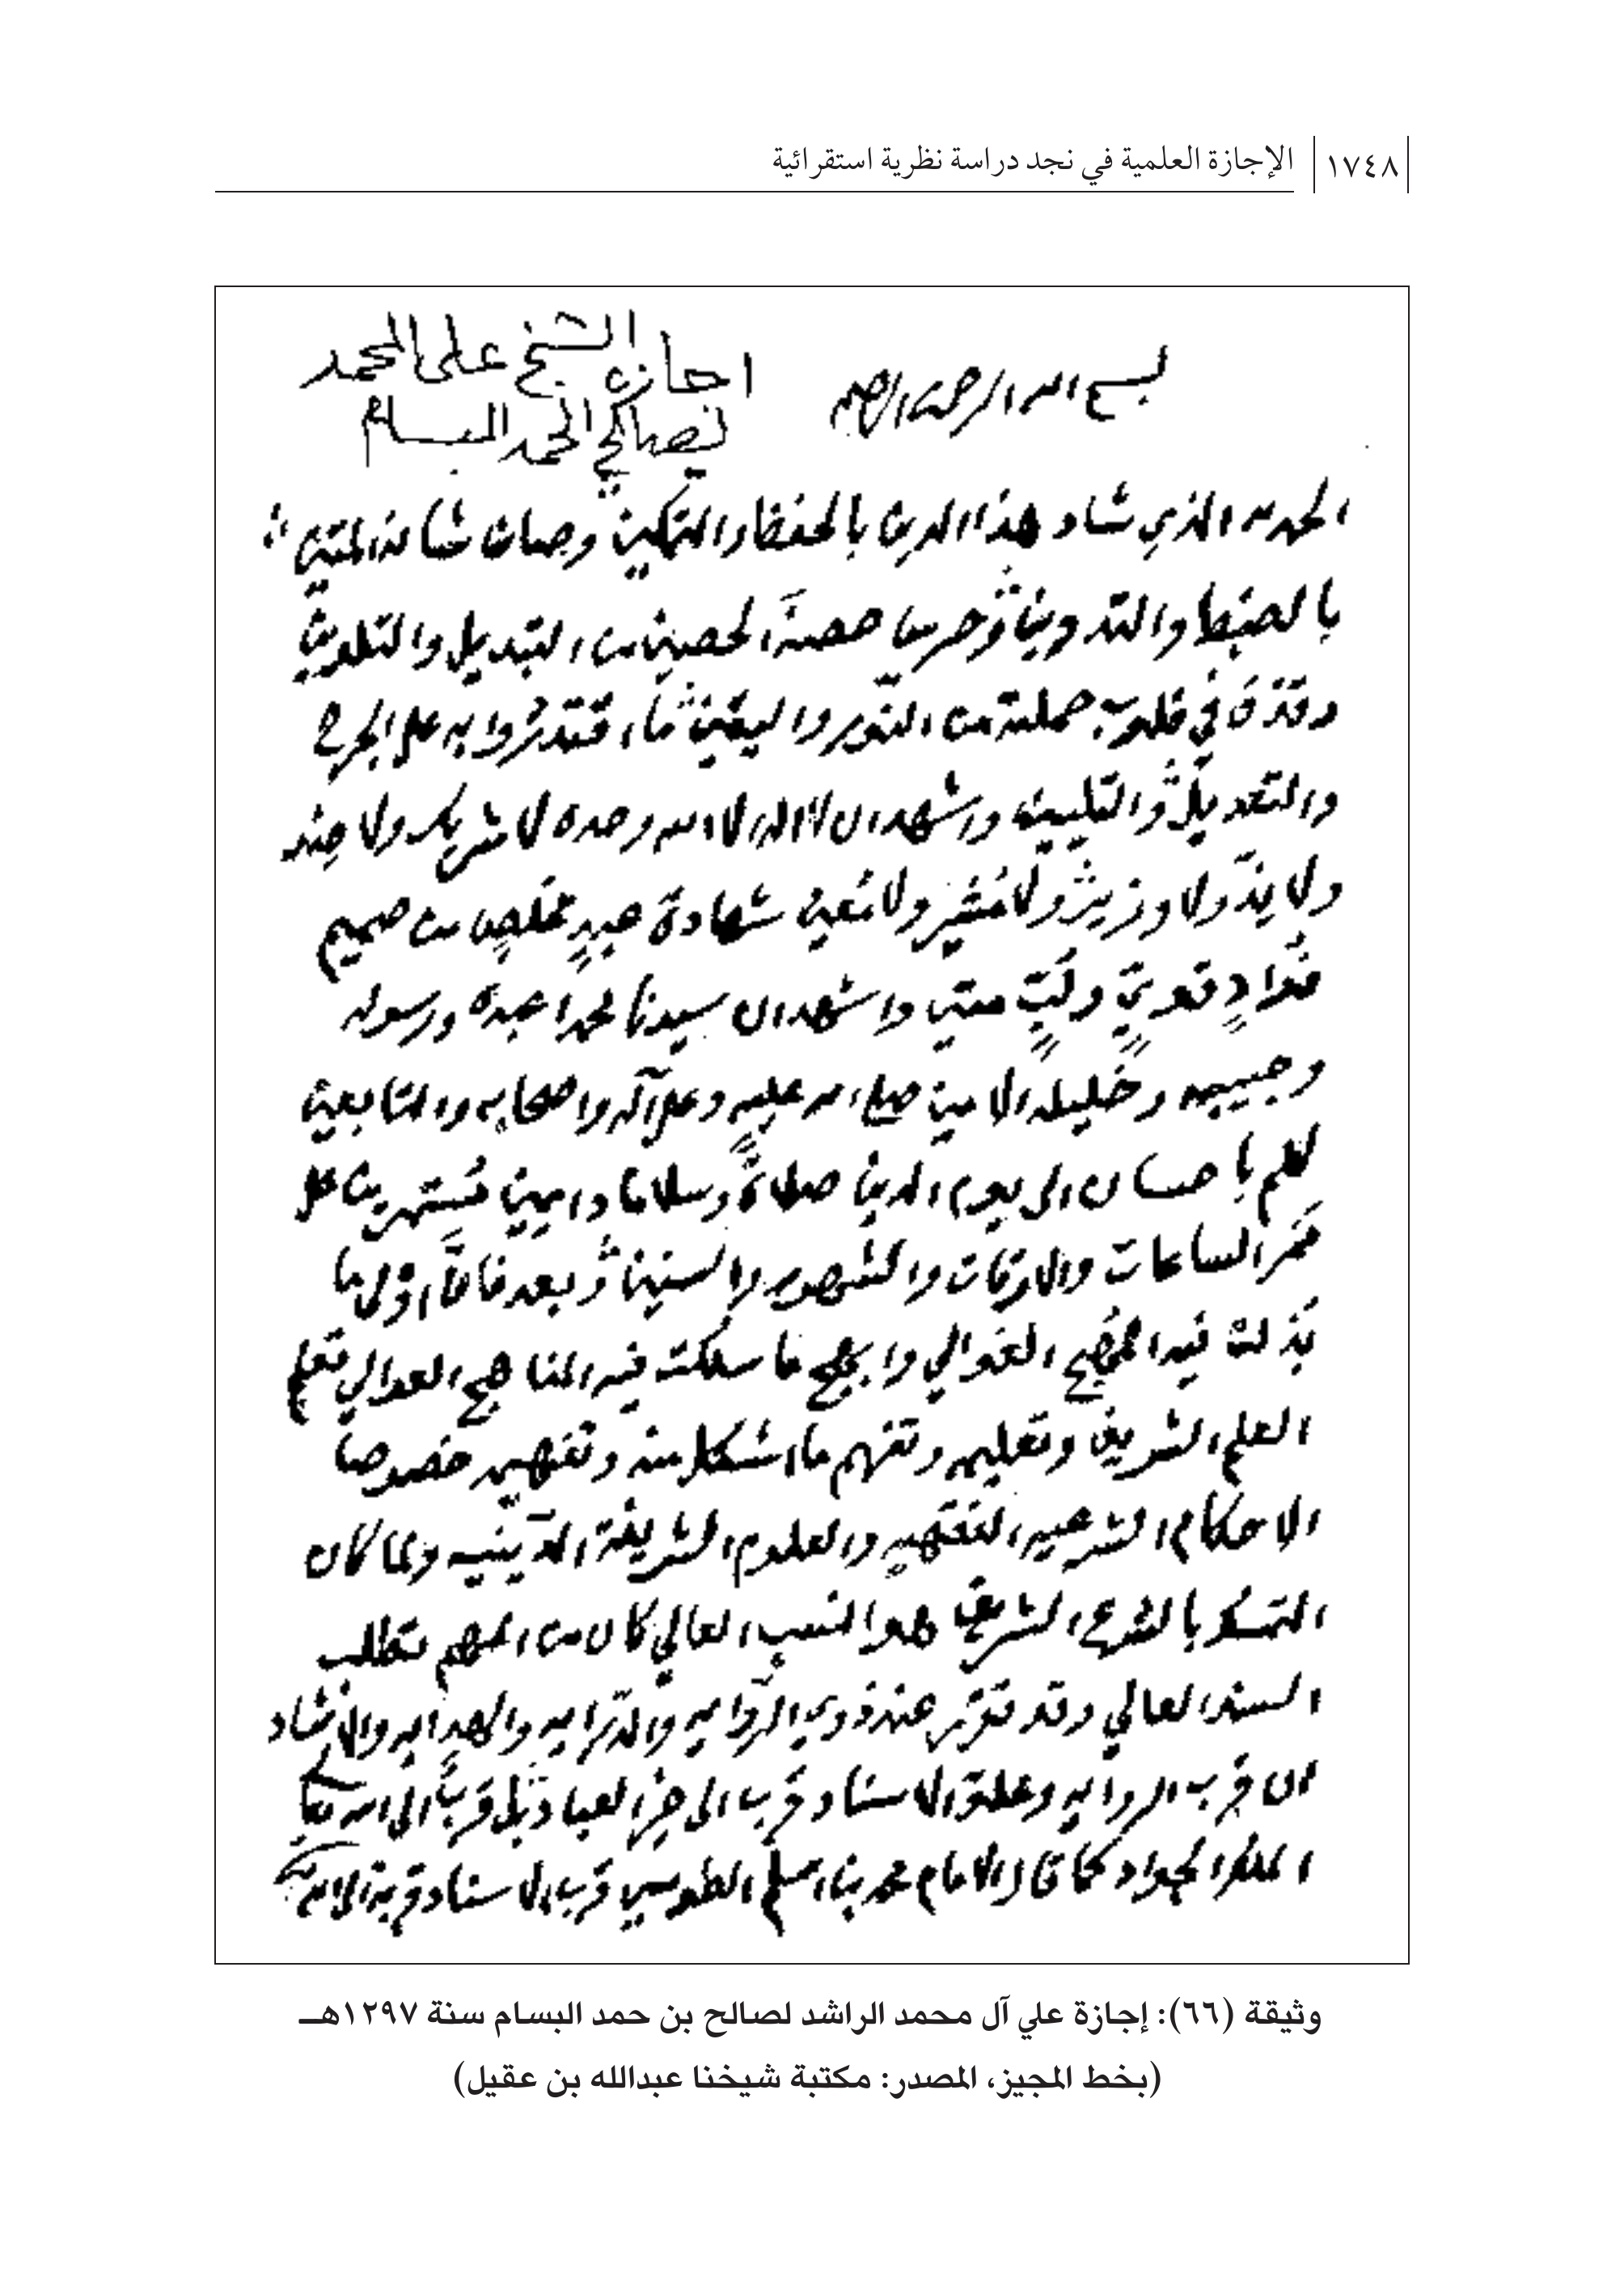 ١٧٤٨ الإجازة العلمية في نجد دراسة نظرية استقرائية
بسم الله الرحمن الرحيم
اجازة الشيخ على المحمد
لصالح الحمد البسام
الحمد لله الذي شاد هذا الدين بالحفظ والتمكين وصان شانه المتين
بالضبط والتدوين وحرس حصنه الحصين من التبديل والتلوين
وقذف في قلوب حملته من النور واليقين ما اقتدروا به على الجرح
والتعديل والتليين واشهد ان لا اله الا الله وحده لا شريك له ولا ضد
ولا ند ولا وزير ولا مشير ولا معين شهادة عبد مخلص من صميم
فواد قوي ولب متين واشهد ان سيدنا محمدا عبده ورسوله
وحبيبه وخليله الامين صلى الله عليه وعلى آله واصحابه والتابعين
لهم باحسان الى يوم الدين صلاة وسلاما دايمين مستمرين على
ممر الساعات والاوقات والشهور والسنين وبعد فان اولى ما
بذلت فيه المهج الغوالي وابهج ما سلكت فيه المناهج العوالي تعلم
العلم الشريف وتعليمه وتفهم ما اشكل منه وتفهيمه خصوصا
الاحكام الشرعيه الفقهيه والعلوم الشريفة الدينيه ولما كان
التمسك بالشرع الشريف هو النسب العالي كان من المهم تطلب
السند العالي وقد تقرر عند ذوي الروايه والدرايه والهدايه والارشاد
ان قرب الروايه وعلو الاسناد قرب الى خير العباد بل قرب الى الله تعالى
الملك الجواد كما قال الامام محمد بن اسلم الطوسي قرب الاسناد قربة الى الله
وثيقة (٦٦): إجازة علي آل محمد الراشد لصالح بن حمد البسام سنة ١٢٩٧هـ
(بخط المجيز، المصدر: مكتبة شيخنا عبدالله بن عقيل)